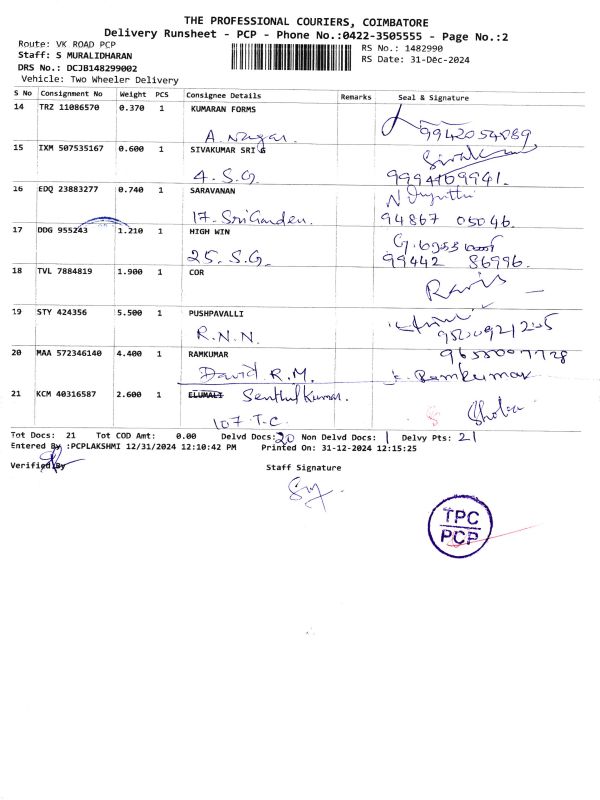 THE PROFESSIONAL COURIERS, COIMBATORE
Delivery Runsheet - PCP - Phone No.:0422-3505555 - Page No.:2
Route: VK ROAD PCP
RS No.: 1482990
Staff: S MURALIDHARAN
RS Date: 31-Dec-2024
DRS No.: DCJB148299002
Vehicle: Two Wheeler Delivery
S No Consignment No Weight PCS Consignee Details Remarks Seal & Signature
14 TRZ 11086570 0.370 1 KUMARAN FORMS
A. Nagar.
9942054089
15 IXM 507535167 0.600 1 SIVAKUMAR SRI G
4. S.G.
16 EDQ 23883277 0.740 1 SARAVANAN
17. Sri Garden. 94867 05046.
17 DDG 955243 1.210 1 HIGH WIN
25. S.G. 99442 86996.
18 TVL 7884819 1.900 1 COR
19 STY 424356 5.500 1 PUSHPAVALLI
R.N.N.
20 MAA 572346140 4.400 1 RAMKUMAR
David R.M. Ramkumar
21 KCM 40316587 2.600 1 ELUMALI Senthil Kumar.
107 T.C. Shoba
Tot Docs: 21 Tot COD Amt: 0.00 Delvd Docs: 20 Non Delvd Docs: 1 Delvy Pts: 21
Entered By :PCPLAKSHMI 12/31/2024 12:10:42 PM Printed On: 31-12-2024 12:15:25
Verified By Staff Signature
TPC
PCP